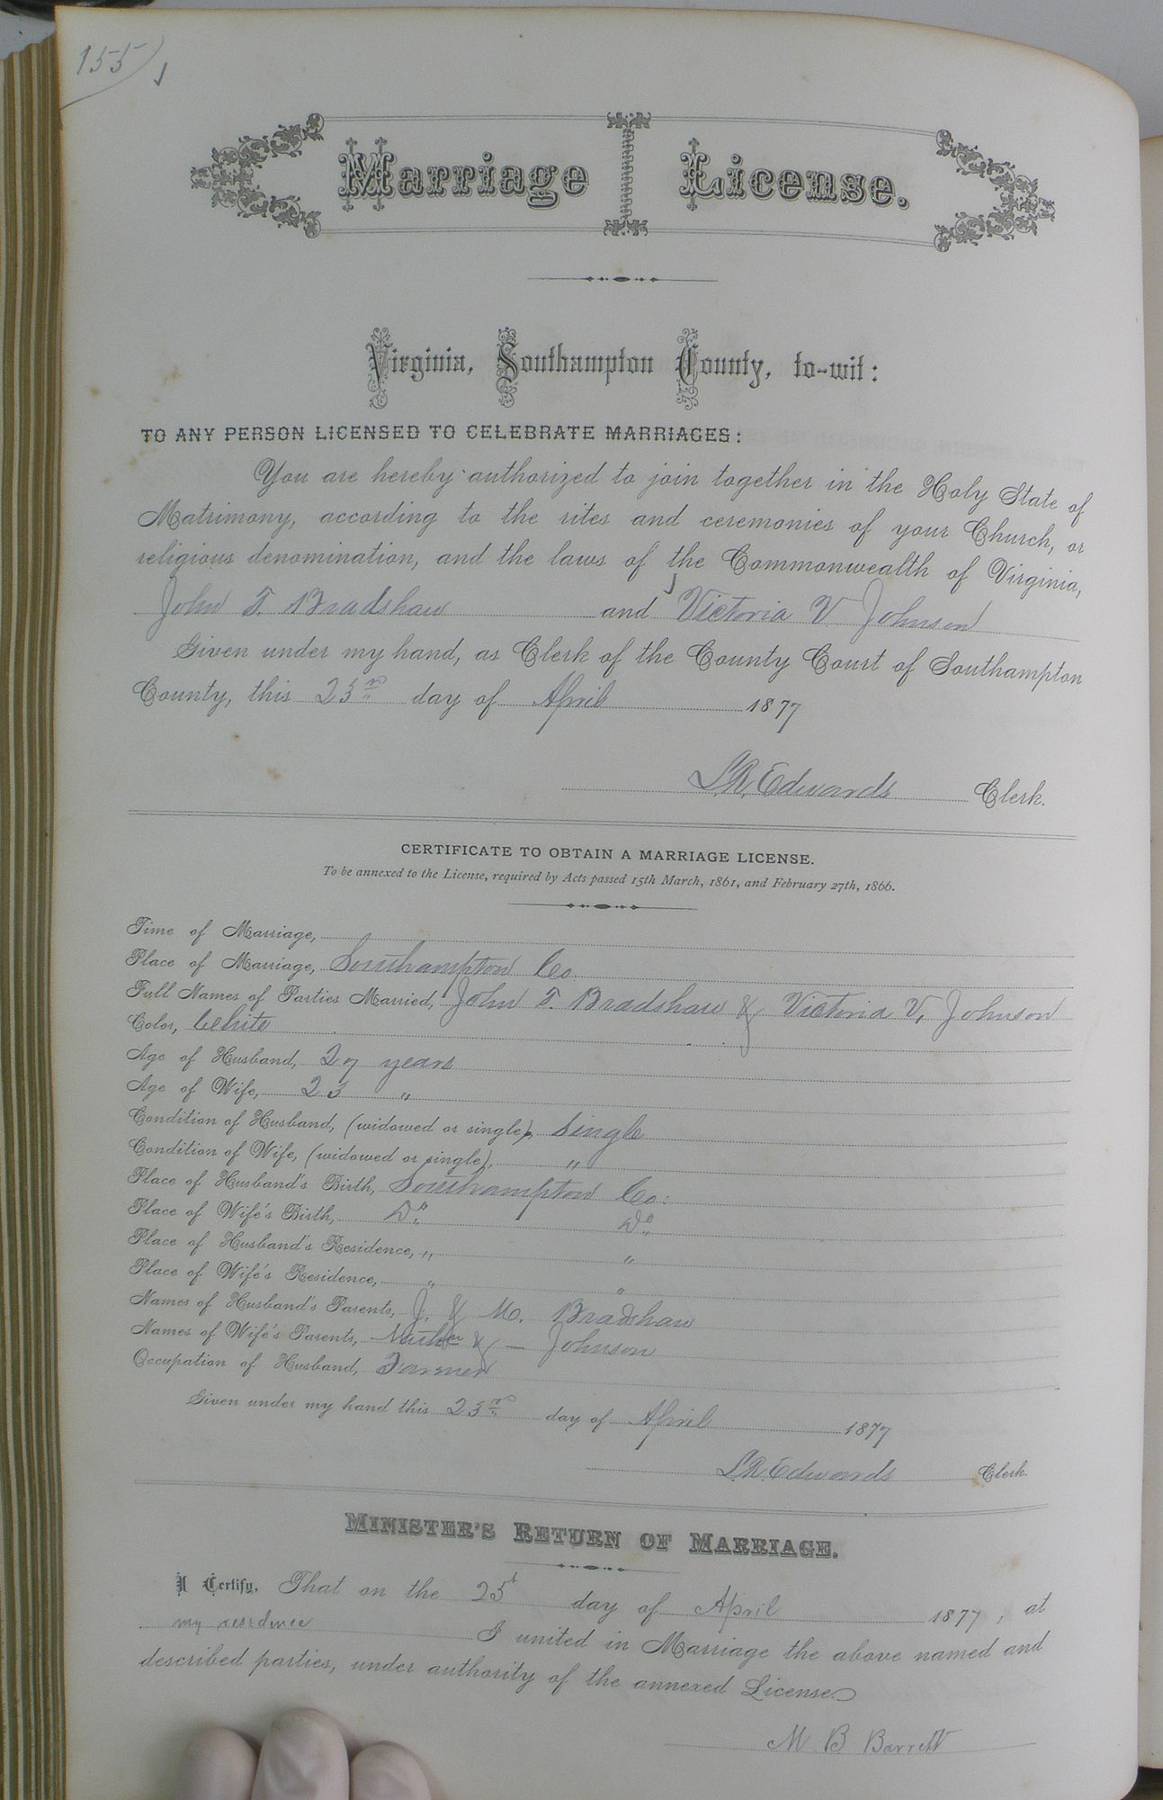 155
Marriage License.
Virginia, Southampton County, to-wit:
TO ANY PERSON LICENSED TO CELEBRATE MARRIAGES:
You are hereby authorized to join together in the Holy State of
Matrimony, according to the rites and ceremonies of your Church, or
religious denomination, and the laws of the Commonwealth of Virginia,
John T. Bradshaw and Victoria V Johnson
Given under my hand, as Clerk of the County Court of Southampton
County, this 23rd day of April 1877
L.R. Edwards Clerk.
CERTIFICATE TO OBTAIN A MARRIAGE LICENSE.
To be annexed to the License, required by Acts passed 15th March, 1861, and February 27th, 1866.
Time of Marriage,
Place of Marriage, Southampton Co.
Full Names of Parties Married, John T. Bradshaw & Victoria V. Johnson
Color, White
Age of Husband, 27 years
Age of Wife, 23 "
Condition of Husband, (widowed or single), Single
Condition of Wife, (widowed or single), "
Place of Husband's Birth, Southampton Co:
Place of Wife's Birth, Do Do
Place of Husband's Residence, " "
Place of Wife's Residence, " "
Names of Husband's Parents, J. & M. Bradshaw
Names of Wife's Parents, & — Johnson
Occupation of Husband, Farmer
Given under my hand this 23rd day of April 1877
L.R. Edwards Clerk.
MINISTER'S RETURN OF MARRIAGE.
I Certify, That on the 25t day of April 1877, at
my residence I united in Marriage the above named and
described parties, under authority of the annexed License.
M B Barrett